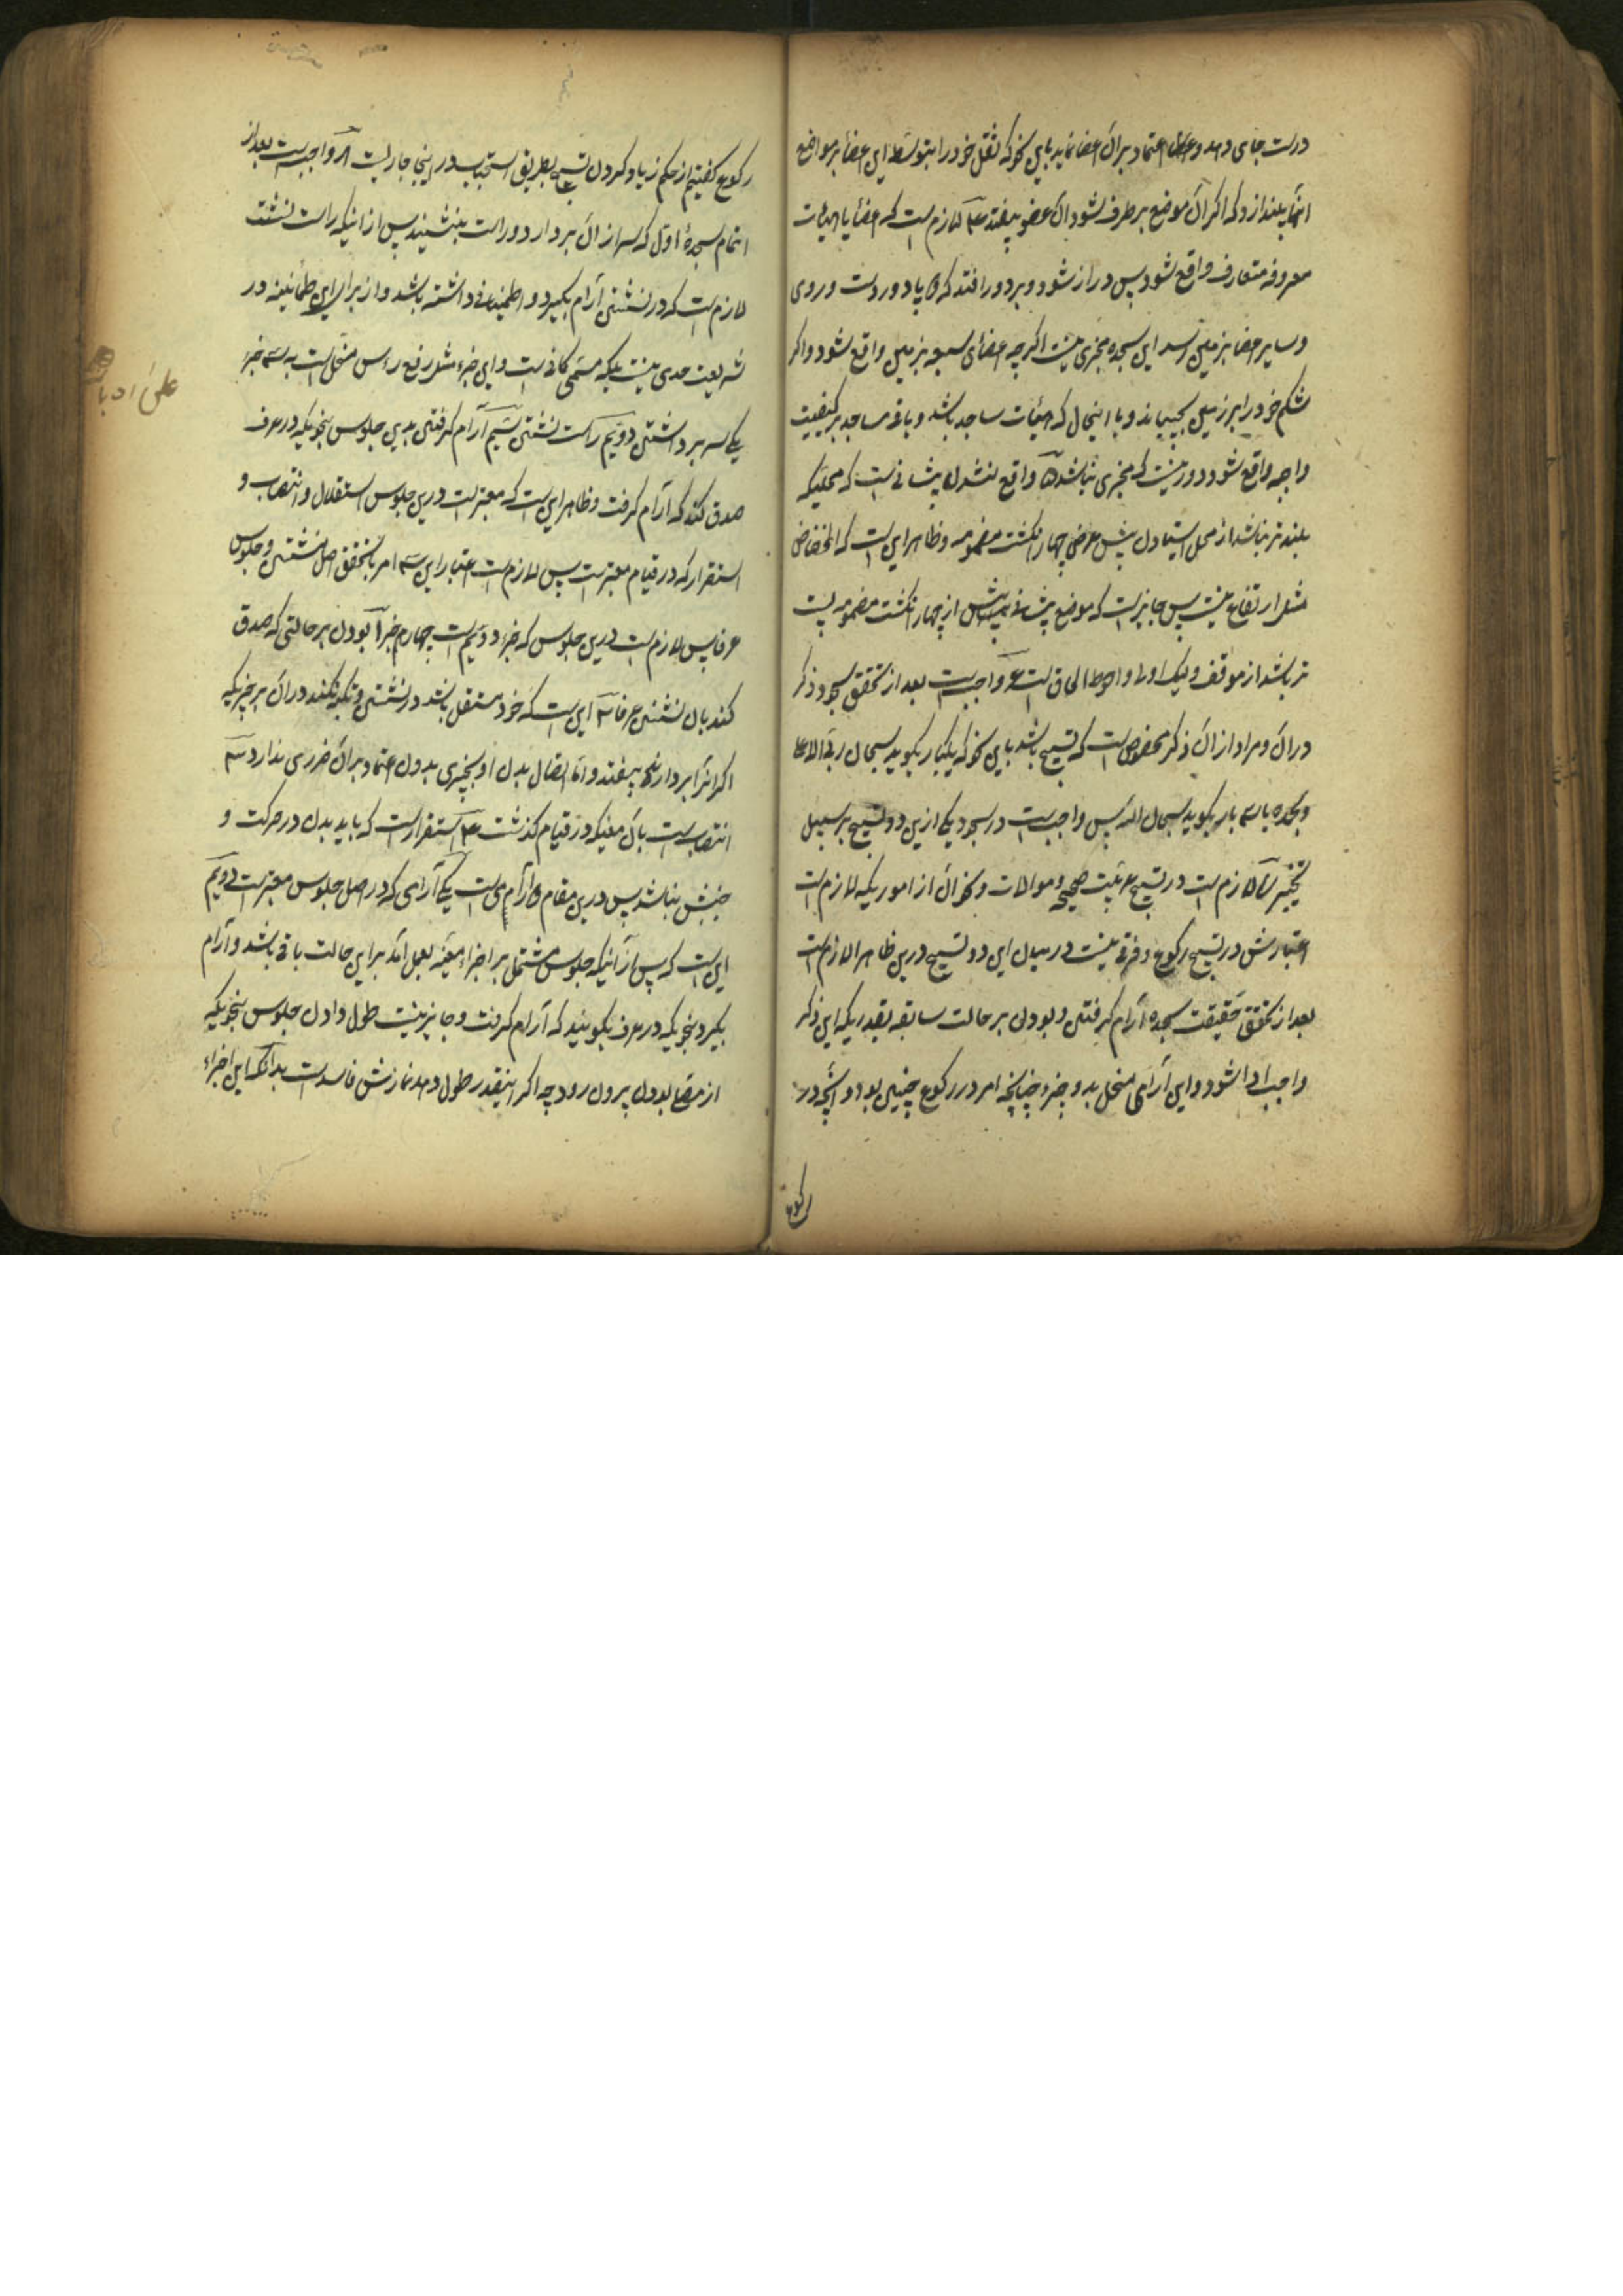 درست جای دهد و اعتماد بر آن اعضا نماید باین نحو که ثقل خود را بتوسط این اعضا بر مواضع
آنها بیندازد که اگر آن موضع بر طرف شود آن عضو بیفتد ۴ لازم است که اعضا با هیئات
معروفه متعارف واقع شود پس دراز شود و بر دور افتد که پا و دست و روی
و سایر اعضا بزمین رسد این سجده مجزی نیست اگر چه اعضای سبعه بزمین واقع شود و اگر
شکم خود را بر زمین بچسباند و با اینحال که هیئات ساجد باشد و باقی مساجد بر کیفیت
واجبه واقع شود دور نیست که مجزی باشد ۵ واقع نشدن پیشانی است که محلیکه
بلندتر باشد از محل ایستادن بیش عرض چهار انگشت مضمومه و ظاهر این است که انخفاض
مثل ارتفاع نیست پس جایز است که موضع پیشانی بیش از چهار انگشت مضمومه پست
تر باشد از موقف ولیک اولی و احوط الحاق است ۶ واجب است بعد از تحقق سجود ذکر
در آن و مراد از آن ذکر مخصوص است که تسبیح باشد باین نحو که یکبار بگوید سبحان ربی الاعلی
و بحمده یا سه بار بگوید سبحان الله پس واجب است در سجود یکی ازین دو تسبیح بر سبیل
تخییر لازم است در تسبیح عربیت صحیحه و موالات و نحو آن از اموریکه لازم است
اعتبارش در تسبیح رکوع و فرقی نیست در میان این دو تسبیح درین ظاهرا لازم است
بعد از تحقق حقیقت سجده آرام گرفتن و بودن بر حالت سابقه بقدریکه این ذکر
واجب ادا شود و این آرامی منحل بدو جزء چنانچه امر در رکوع چنین بود و آنچه در
رکوع
رکوع گفتیم از حکم زیاد کردن تسبیح بطریق استحباب در اینجا جاریست ۸ واجب است بعد از
اتمام سجدهٔ اول که سر از آن بردارد و راست بنشیند پس از اینکه راست نشست
لازم است که در نشستن آرام بگیرد و اطمینانی داشته باشد و از برای این طمانینه در
شریعت حدی نیست بلکه مسمی کافی است و این جزء مثل رفع رأس منحل است به سه جزء
یکی سر برداشتن دویم راست نشستن سیم آرام گرفتن بدین جلوس بنحویکه در عرف
صدق کند که آرام گرفت و ظاهر این است که معتبر است درین جلوس استقلال و انتصاب و
استقرار که در قیام معتبر است پس لازم است اعتبار این سه امر با تحقق اصل نشستن و جلوس
عرفا پس لازم است درین جلوس که جزء دویم است چهارم جزء ۱ بودن بر حالتی که صدق
کند بآن نشستن عرفا ۲ این است که خود مستقل باشد در نشستن و تکیه نکند در آن بر چیزیکه
اگر آنرا بردارند بیفتد و اما اتصال بدن او بچیزی بدون اعتماد بر آن ضرری ندارد ۳
انتصاب است بآن معنی که در قیام گذشت ۴ استقرار است که باید بدن در حرکت و
جنبش نباشد پس درین مقام دو آرامی است یکی آرامی که در اصل جلوس معتبر است دویم
این است که پس از آنیکه جلوس مشتمل بر اجزاء معینه بعمل آمد بر این حالت باقی باشد و آرام
بگیرد بنحویکه در عرف بگویند که آرام گرفت و جایز نیست طول دادن جلوس بنحویکه
از مصلی بودن بیرون رود چه اگر اینقدر طول دهد نمازش فاسد است بدانکه این اجزاء